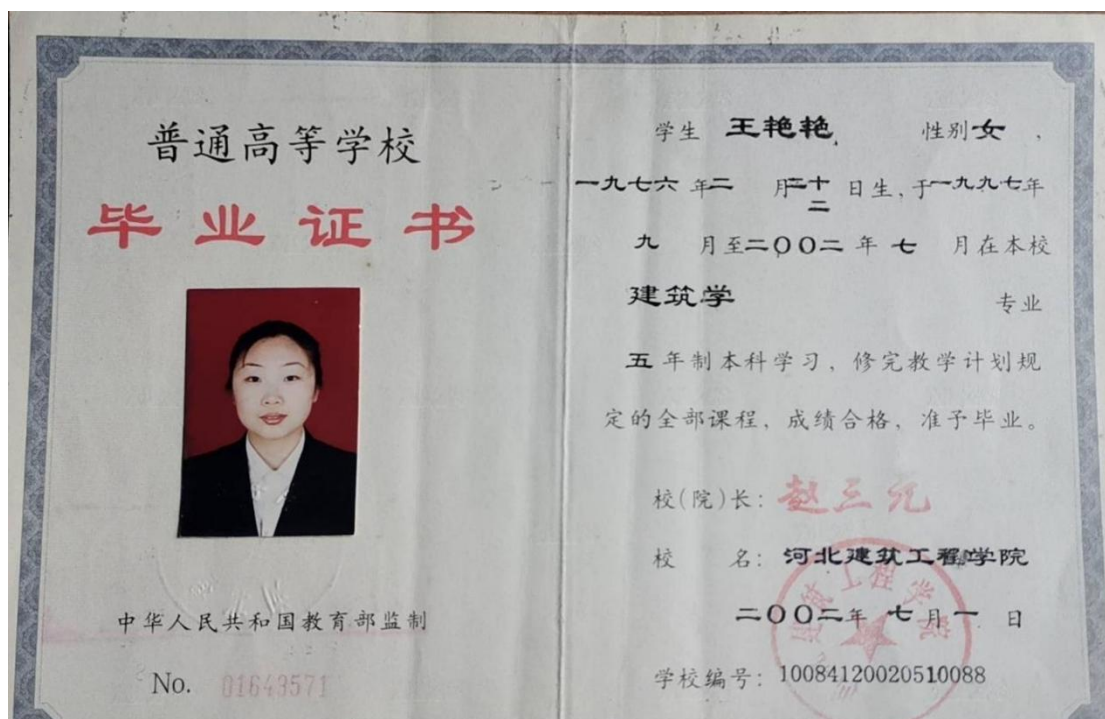 普通高等学校
毕业证书
中华人民共和国教育部监制
No. 01643571
学生 王艳艳, 性别 女,
一九七六年二 月二十二日生,于一九九七年
九 月至二〇〇二年 七 月在本校
建筑学 专业
五年制本科学习,修完教学计划规
定的全部课程,成绩合格,准予毕业。
校(院)长:赵三元
校 名:河北建筑工程学院
二〇〇二年 七月一 日
学校编号:10084120020510088
建筑工程学院